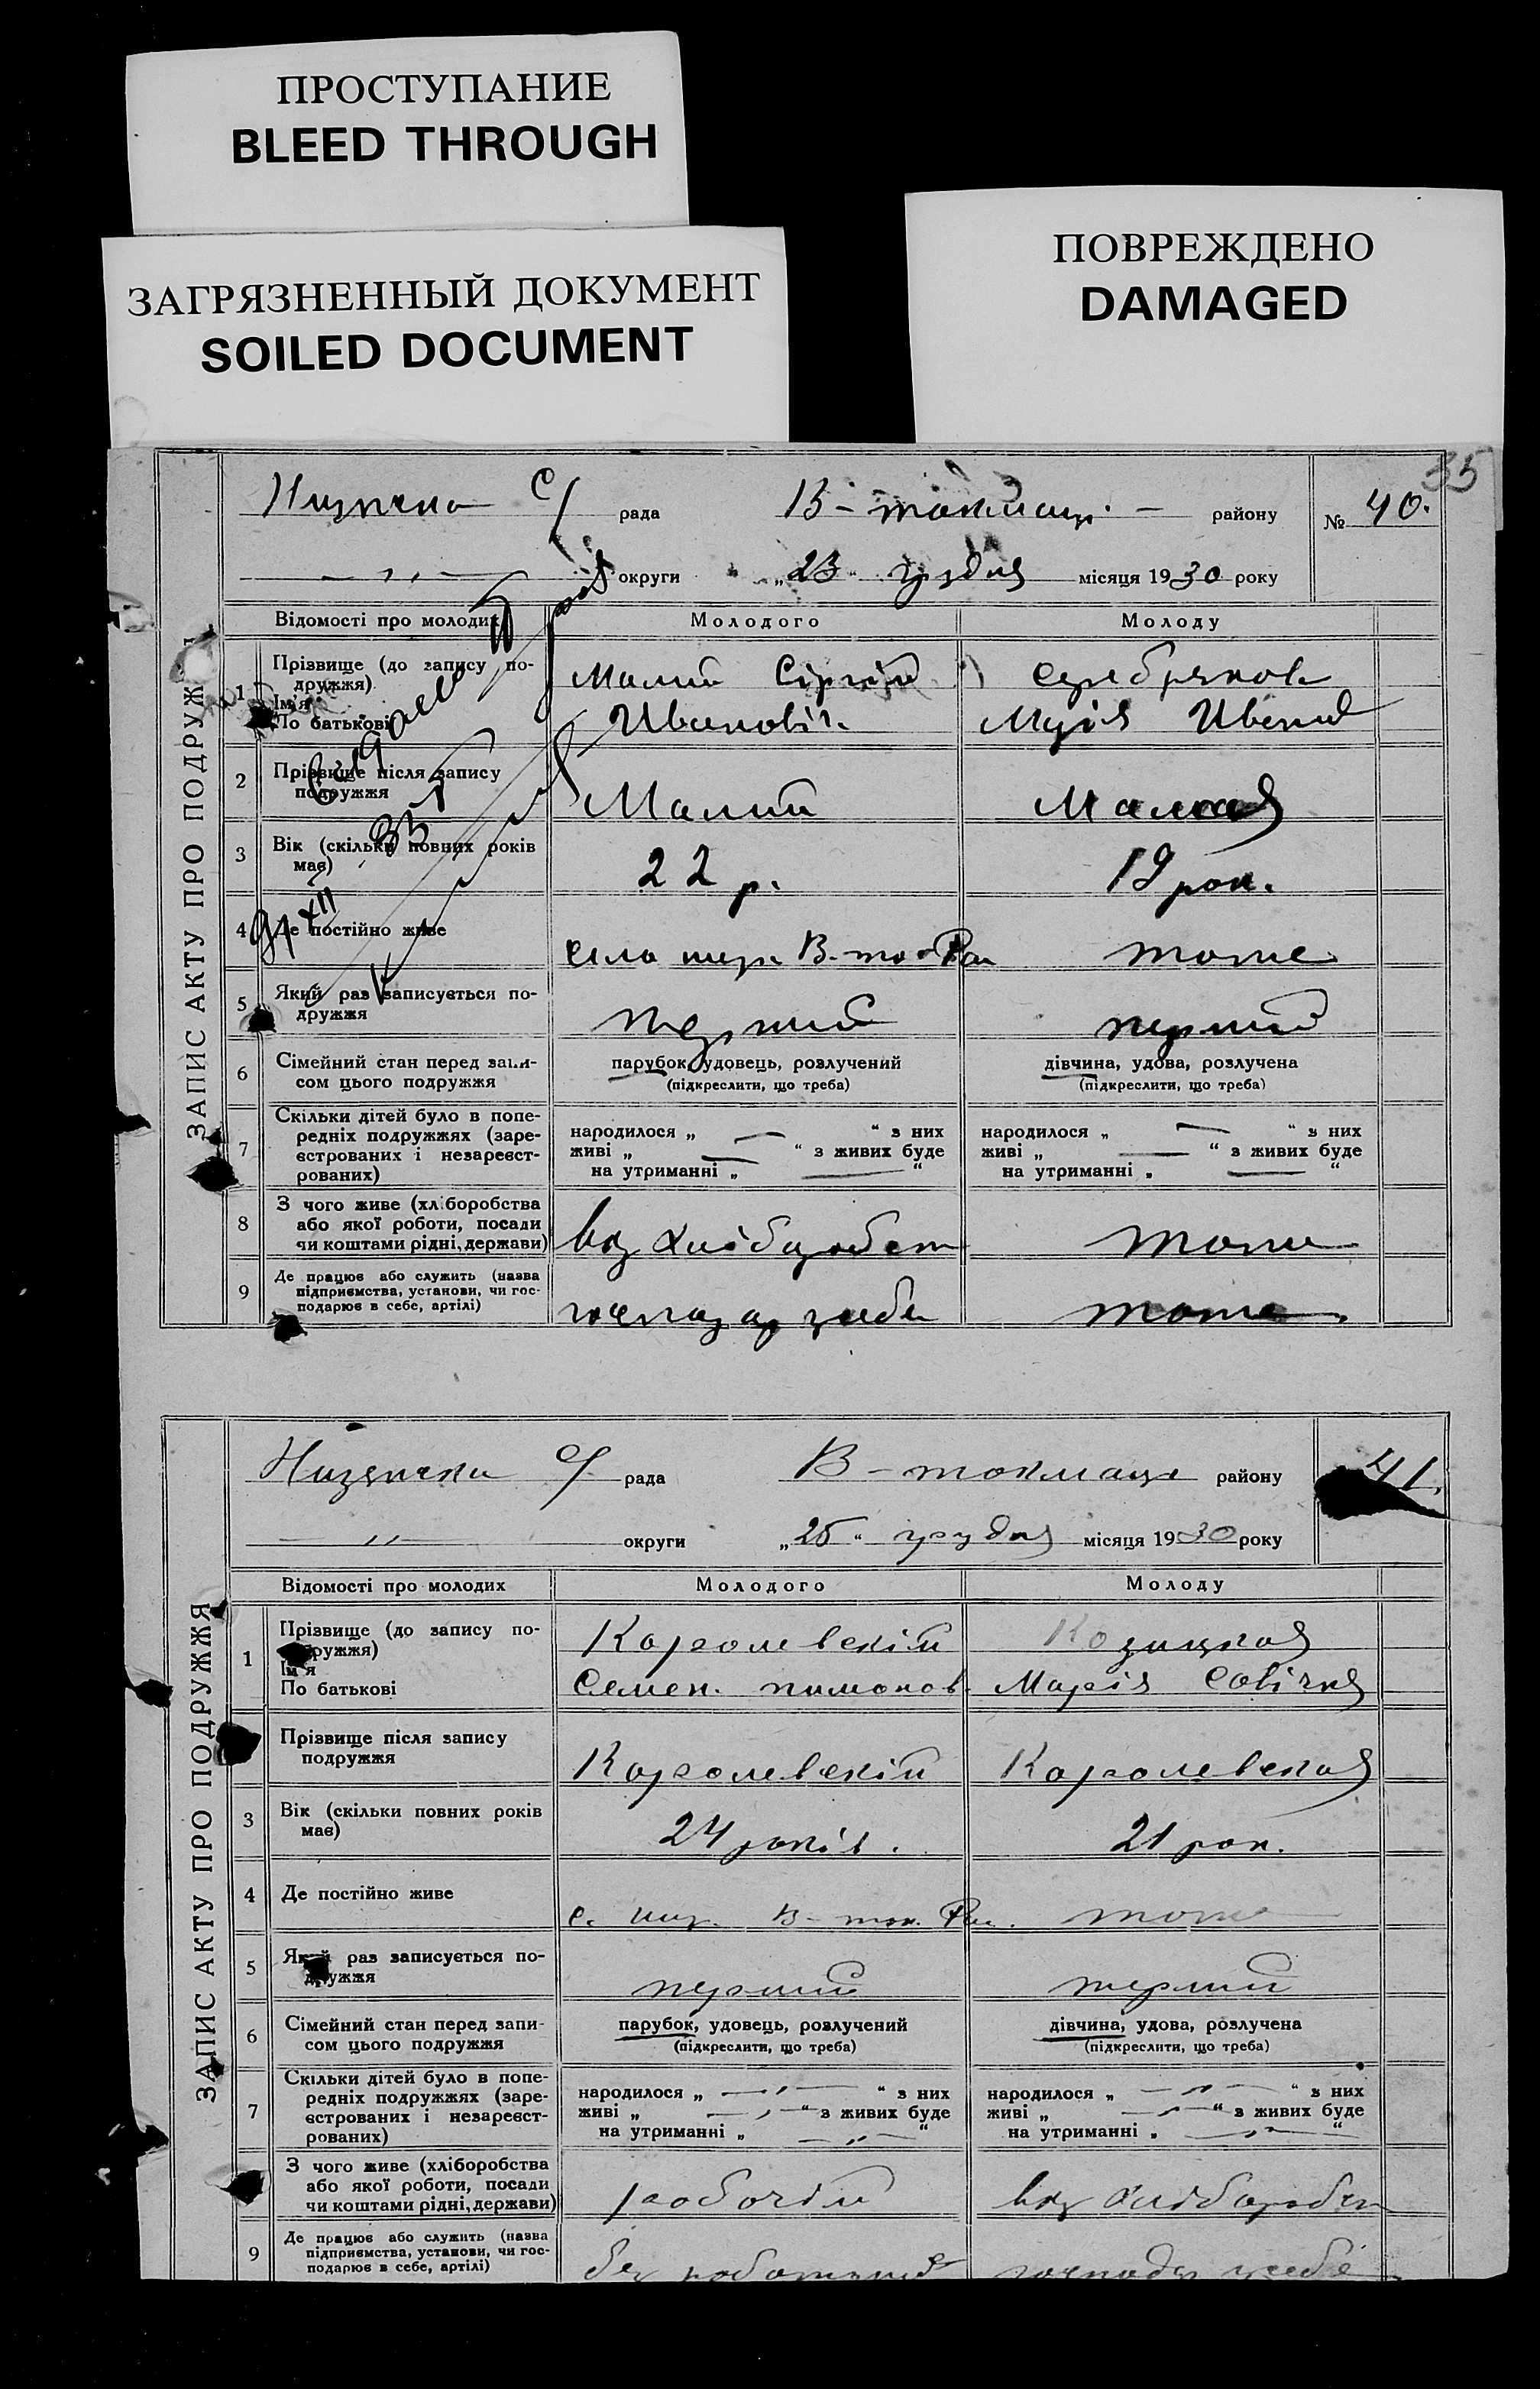 ПРОСТУПАНИЕ
BLEED THROUGH
ЗАГРЯЗНЕННЫЙ ДОКУМЕНТ
SOILED DOCUMENT
ПОВРЕЖДЕНО
DAMAGED
35
ЗАПИС АКТУ ПРО ПОДРУЖ
С/ рада В-токмац. району № 40.
— „ — округи „23“ грудня місяця 1930 року
Відомості про молодих Молодого Молоду
1 Прізвище (до запису по-
дружжя) Малий Сіргій
Ім'я
По батькові Иванович Марія Иванов
2 Прізвище після запису
подружжя Малий Малая
3 Вік (скільки повних років
має) 22 р. 19 рок.
4 Де постійно живе село В-ток Рай тоже
5 Який раз записується по-
дружжя перший перший
6 Сімейний стан перед запи-
сом цього подружжя парубок, удовець, розлучений дівчина, удова, розлучена
(підкреслити, що треба) (підкреслити, що треба)
7 Скільки дітей було в попе-
редніх подружжях (заре-
єстрованих і незареєст-
рованих) народилося „ — “ з них народилося „ — “ з них
живі „ — “ з живих буде живі „ — “ з живих буде
на утриманні „ — “ на утриманні „ — “
8 З чого живе (хліборобства
або якої роботи, посади
чи коштами рідні, держави) від хліборобст тоже
9 Де працює або служить (назва
підприємства, установи, чи гос-
подарює в себе, артілі) господар у себе тоже.
ЗАПИС АКТУ ПРО ПОДРУЖЖЯ
С/ рада В-токмац району 41.
— „ — округи „25“ грудня місяця 1930 року
Відомості про молодих Молодого Молоду
1 Прізвище (до запису по-
дружжя) Королевскій Козицкая
Ім'я
По батькові Семен. Марія
Прізвище після запису
подружжя Королевскій Королевская
3 Вік (скільки повних років
має) 24 років. 21 рок.
4 Де постійно живе с. В-ток. Рай. тоже
5 Який раз записується по-
дружжя перший перший
6 Сімейний стан перед запи-
сом цього подружжя парубок, удовець, розлучений дівчина, удова, розлучена
(підкреслити, що треба) (підкреслити, що треба)
7 Скільки дітей було в попе-
редніх подружжях (заре-
єстрованих і незареєст-
рованих) народилося „ — „ — “ з них народилося „ — „ — “ з них
живі „ — „ — “ з живих буде живі „ — „ — “ з живих буде
на утриманні „ — „ — “ на утриманні „ — „ — “
З чого живе (хліборобства
або якої роботи, посади
чи коштами рідні, держави) робочій від хліборобст
9 Де працює або служить (назва
підприємства, установи, чи гос-
подарює в себе, артілі) без господар у себе